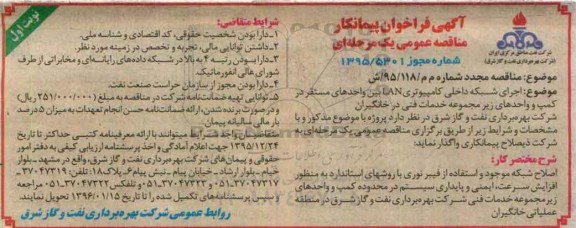 نوبت اول
آگهی فراخوان پیمانکار
مناقصه عمومی یک مرحله‌ای
شماره مجوز ۱۳۹۵/۵۳۰۱
شرکت نفت مناطق مرکزی ایران
(شرکت بهره‌برداری نفت و گاز شرق)
موضوع: مناقصه مجدد شماره م م/۹۵/۱۱۸/ش
موضوع: اجرای شبکه داخلی کامپیوتری LAN بین واحدهای مستقر در
کمپ و واحدهای زیر مجموعه خدمات فنی در خانگیران
شرکت بهره‌برداری نفت و گاز شرق در نظر دارد پروژه با موضوع مذکور و با
مشخصات و شرایط زیر از طریق برگزاری مناقصه عمومی یک مرحله‌ای به
شرکت ذیصلاح پیمانکاری واگذار نماید:
شرح مختصر کار:
اصلاح شبکه موجود و استفاده از فیبر نوری با روشهای استاندارد به منظور
افزایش سرعت، ایمنی و پایداری سیستم در محدوده کمپ و واحدهای
زیر مجموعه خدمات فنی شرکت بهره‌برداری نفت و گاز شرق در منطقه
عملیاتی خانگیران
شرایط متقاضی:
۱-دارا بودن شخصیت حقوقی، کد اقتصادی و شناسه ملی.
۲-داشتن توانایی مالی، تجربه و تخصص در زمینه مورد نظر.
۳-دارا بودن رتبه ۴ به بالا در شبکه داده‌های رایانه‌ای و مخابراتی از طرف
شورای عالی انفورماتیک.
۴-دارا بودن مجوز از سازمان حراست صنعت نفت.
۵-توانایی تهیه ضمانت‌نامه شرکت در مناقصه به مبلغ (۲۵۱/۰۰۰/۰۰۰) ریال
و در صورت برنده شدن، ارائه ضمانت‌نامه حسن انجام تعهدات به میزان ۵ درصد
بار مالی سالیانه پیمان.
متقاضیان واجد شرایط میتوانند با ارائه معرفینامه کتبی حداکثر تا تاریخ
۱۳۹۵/۱۲/۲۴ جهت اعلام آمادگی و اخذ پرسشنامه ارزیابی کیفی به دفتر امور
حقوقی و پیمان‌های شرکت بهره‌برداری نفت و گاز شرق، واقع در مشهد - بلوار
خیام - بلوار ارشاد - خیابان پیام - نبش پیام۶- پلاک۱۸؛ تلفن: ۳۷۰۴۷۳۱۹-
۰۵۱-۳۷۰۴۷۳۱۷ و ۰۵۱-۳۷۰۴۷۳۳۳ و تلفکس ۰۵۱-۳۷۰۴۷۳۲۲ مراجعه
و سپس پرسشنامه‌های تکمیل شده را تا تاریخ ۱۳۹۶/۰۱/۱۵ تحویل نمایند.
روابط عمومی شرکت بهره‌برداری نفت و گاز شرق